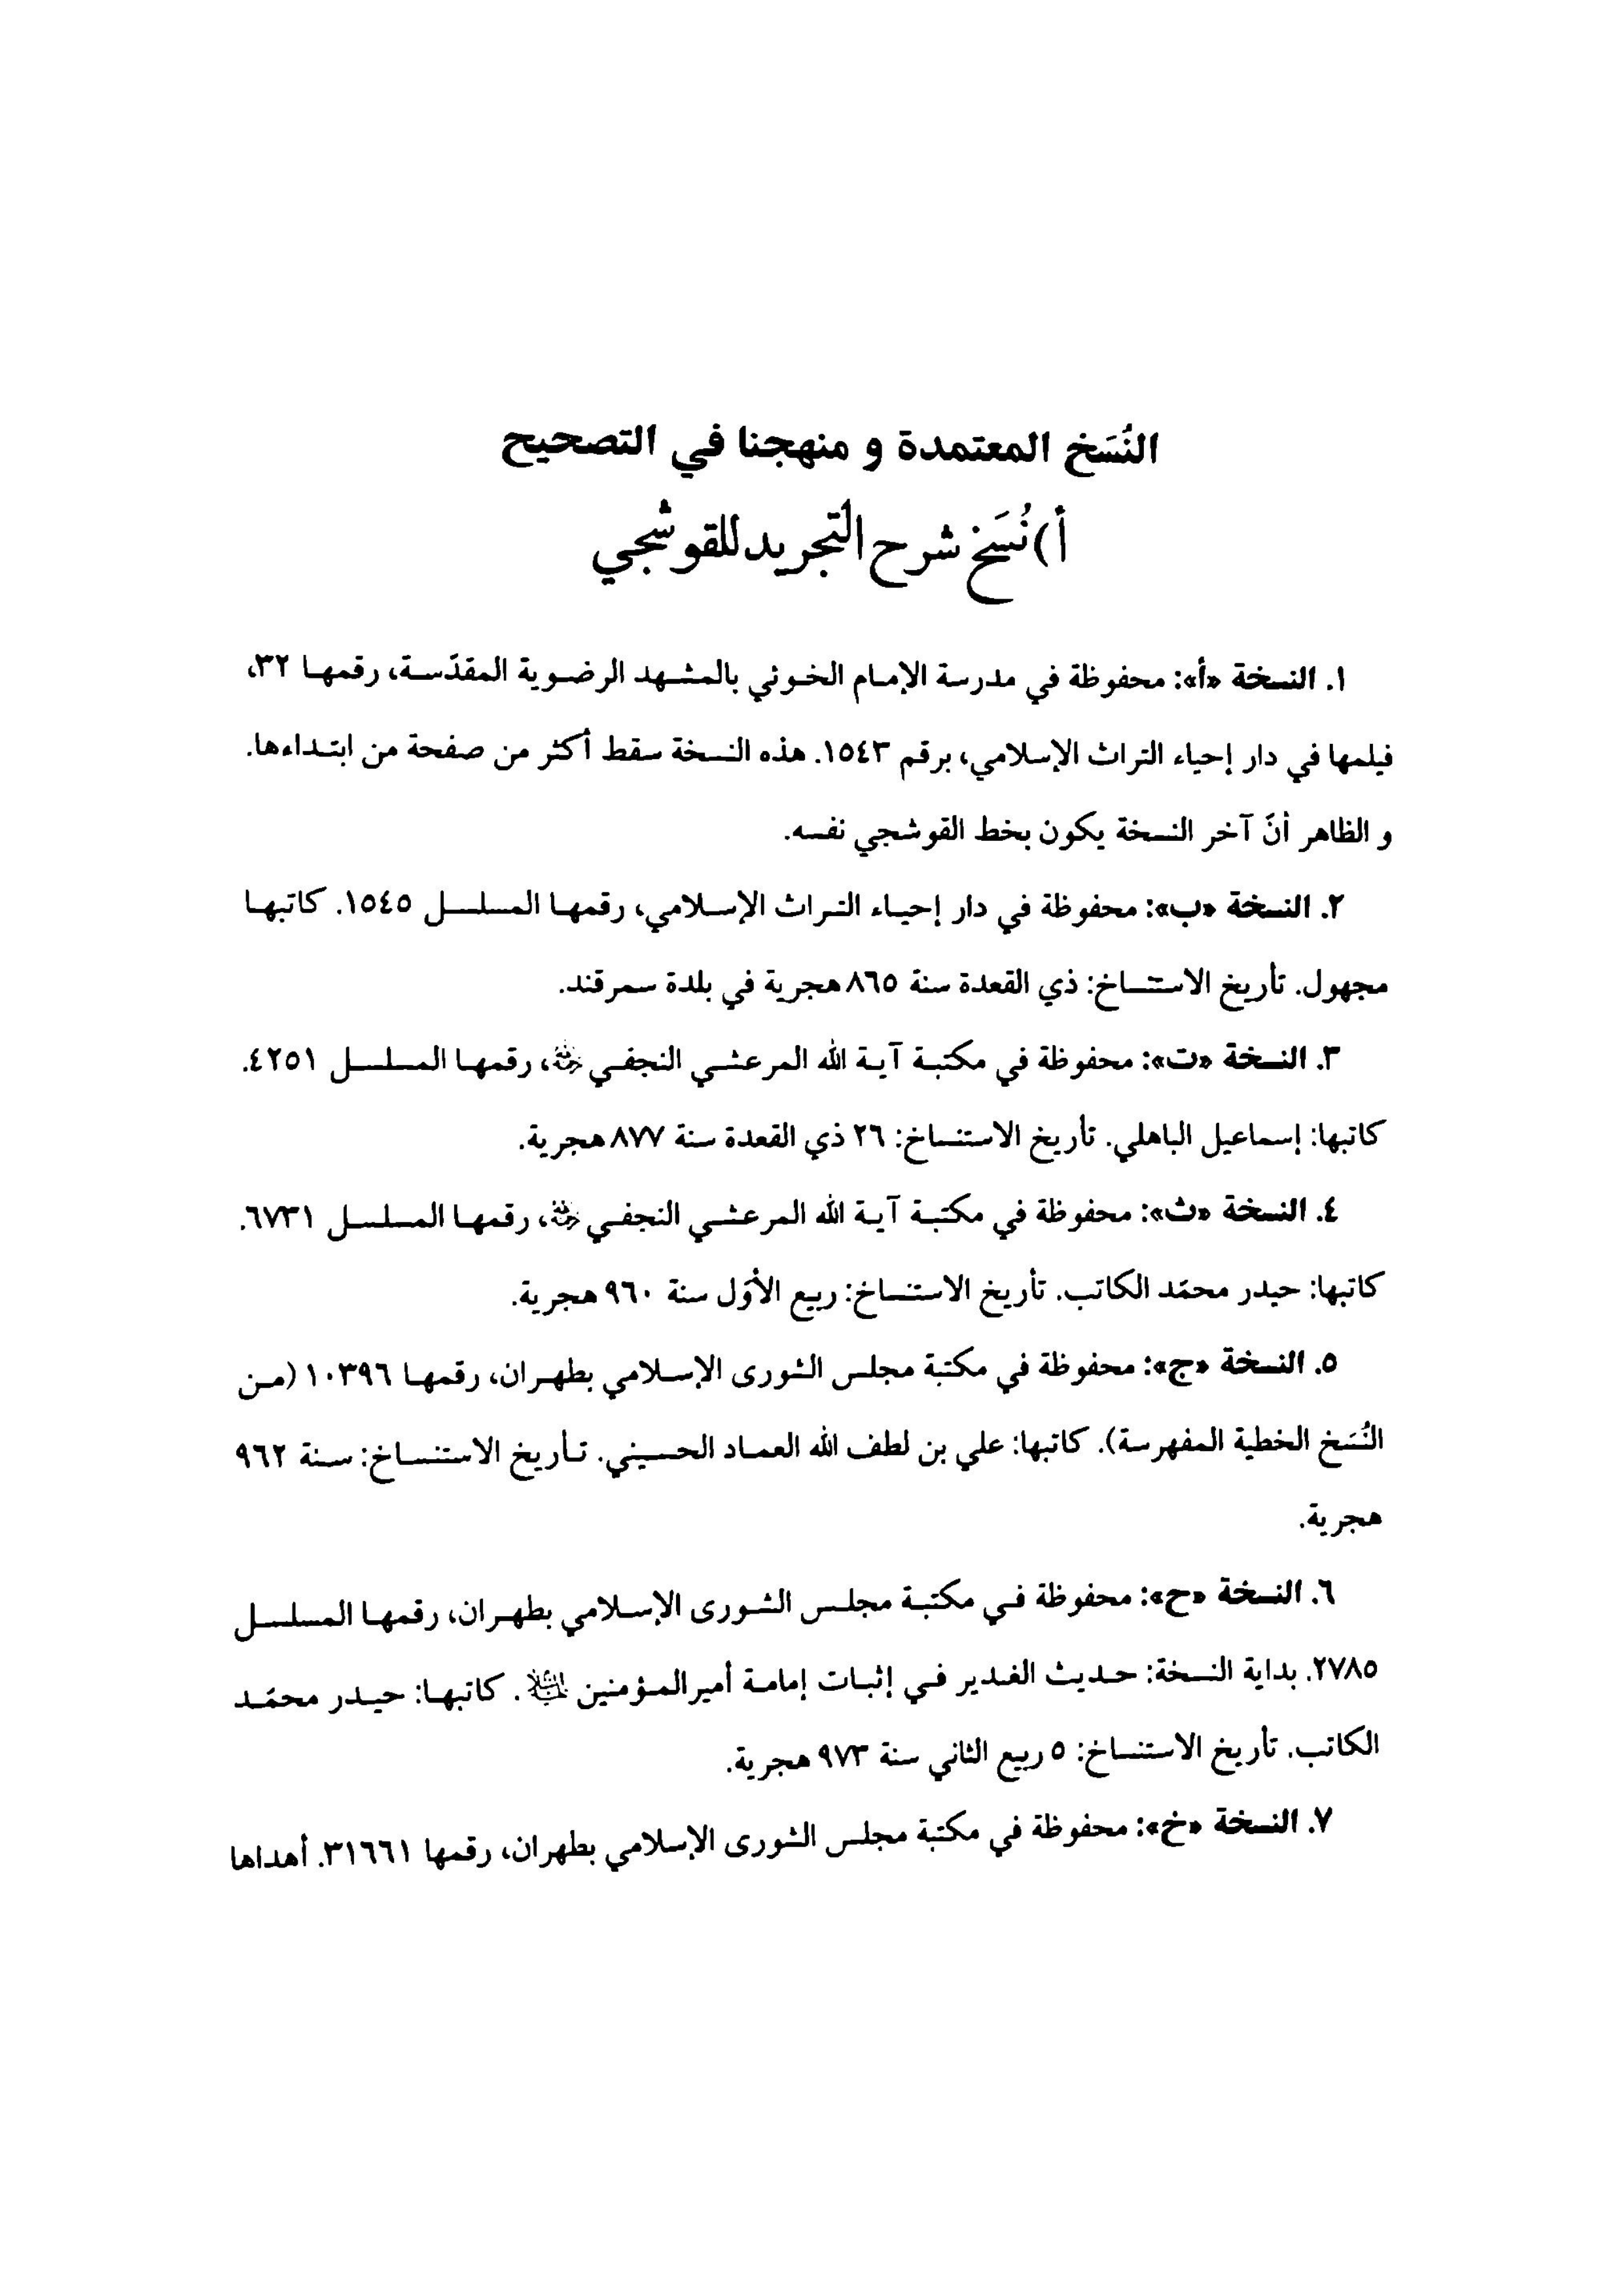 النُسَخ المعتمدة و منهجنا في التصحيح
أ) نُسَخ شرح التجريد للقوشجي
١. النسخة «أ»: محفوظة في مدرسة الإمام الخوئي بالمشهد الرضوية المقدّسة، رقمها ٣٢،
فيلمها في دار إحياء التراث الإسلامي، برقم ١٥٤٣. هذه النسخة سقط أكثر من صفحة من ابتداءها.
و الظاهر أنّ آخر النسخة يكون بخط القوشجي نفسه.
٢. النسخة «ب»: محفوظة في دار إحياء التراث الإسلامي، رقمها المسلسل ١٥٤٥. كاتبها
مجهول. تأريخ الاستنساخ: ذي القعدة سنة ٨٦٥ هجرية في بلدة سمرقند.
٣. النسخة «ت»: محفوظة في مكتبة آية الله المرعشي النجفي ﷫، رقمها المسلسل ٤٢٥١.
كاتبها: إسماعيل الباهلي. تأريخ الاستنساخ: ٢٦ ذي القعدة سنة ٨٧٧ هجرية.
٤. النسخة «ث»: محفوظة في مكتبة آية الله المرعشي النجفي ﷫، رقمها المسلسل ٦٧٣١.
كاتبها: حيدر محمّد الكاتب. تأريخ الاستنساخ: ربيع الأوّل سنة ٩٦٠ هجرية.
٥. النسخة «ج»: محفوظة في مكتبة مجلس الشورى الإسلامي بطهران، رقمها ١٠٣٩٦ (من
النُسَخ الخطية المفهرسة). كاتبها: علي بن لطف الله العماد الحسيني. تأريخ الاستنساخ: سنة ٩٦٢
هجرية.
٦. النسخة «ح»: محفوظة في مكتبة مجلس الشورى الإسلامي بطهران، رقمها المسلسل
٢٧٨٥. بداية النسخة: حديث الغدير في إثبات إمامة أميرالمؤمنين ﷷ. كاتبها: حيدر محمّد
الكاتب. تأريخ الاستنساخ: ٥ ربيع الثاني سنة ٩٧٣ هجرية.
٧. النسخة «خ»: محفوظة في مكتبة مجلس الشورى الإسلامي بطهران، رقمها ٣١٦٦١. أهداها